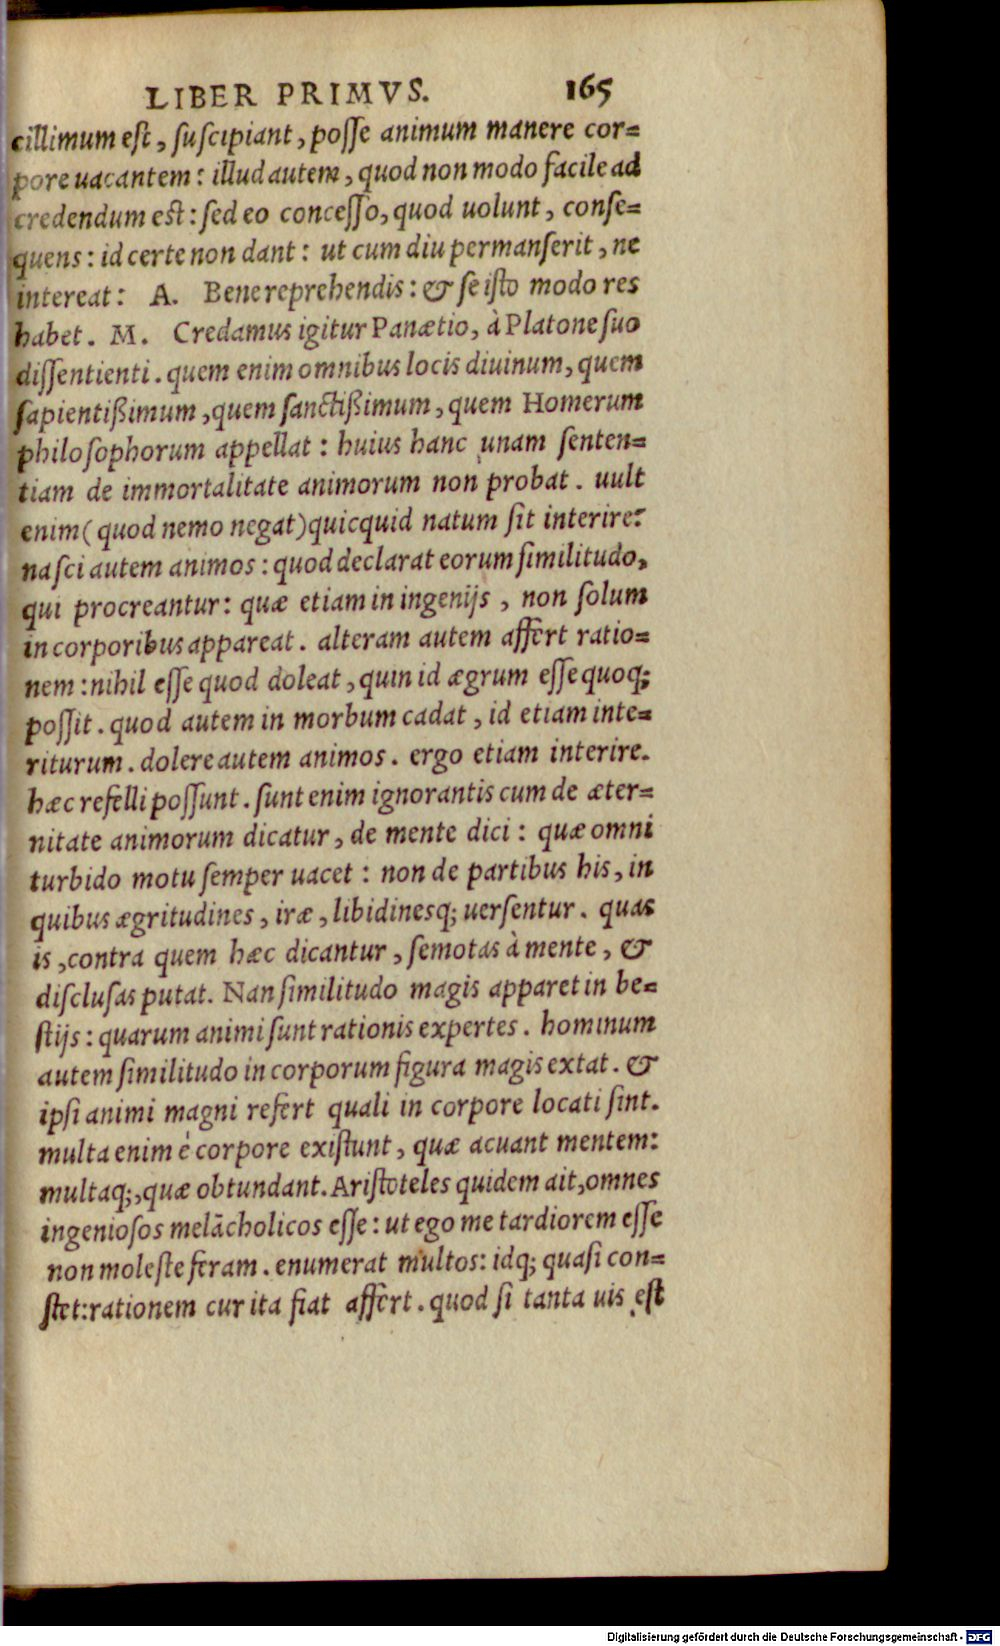 LIBER PRIMVS. 165
cillimum est, suscipiant, posse animum manere cor=
pore uacantem: illud autem, quod non modo facile ad
credendum est: sed eo concesso, quod uolunt, conse=
quens: id certe non dant: ut cum diu permanserit, ne
intereat: A. Bene reprehendis: & se isto modo res
habet. M. Credamus igitur Panætio, à Platone suo
dissentienti. quem enim omnibus locis diuinum, quem
sapientißimum, quem sanctißimum, quem Homerum
philosophorum appellat: huius hanc unam senten=
tiam de immortalitate animorum non probat. uult
enim (quod nemo negat) quicquid natum sit interire:
nasci autem animos: quod declarat eorum similitudo,
qui procreantur: quæ etiam in ingenijs, non solum
in corporibus appareat. alteram autem affert ratio=
nem: nihil esse quod doleat, quin id ægrum esse quoq;
possit. quod autem in morbum cadat, id etiam inte=
riturum. dolere autem animos. ergo etiam interire.
hæc refelli possunt. sunt enim ignorantis cum de æter=
nitate animorum dicatur, de mente dici: quæ omni
turbido motu semper uacet: non de partibus his, in
quibus ægritudines, iræ, libidinesq; uersentur. quas
is, contra quem hæc dicantur, semotas à mente, &
disclusas putat. Nan similitudo magis apparet in be=
stijs: quarum animi sunt rationis expertes. hominum
autem similitudo in corporum figura magis extat. &
ipsi animi magni refert quali in corpore locati sint.
multa enim è corpore existunt, quæ acuant mentem:
multaq;, quæ obtundant. Aristoteles quidem ait, omnes
ingeniosos melācholicos esse: ut ego me tardiorem esse
non moleste feram. enumerat multos: idq; quasi con=
stet: rationem cur ita fiat affert. quod si tanta uis est
Digitalisierung gefördert durch die Deutsche Forschungsgemeinschaft - DFG